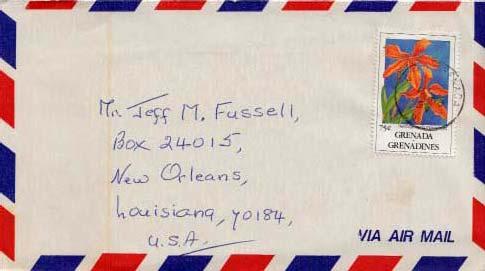 Mr. Jeff M. Fussell,
Box 24015,
New Orleans,
Louisiana, 70184,
U.S.A.
75c
GRENADA
GRENADINES
VIA AIR MAIL